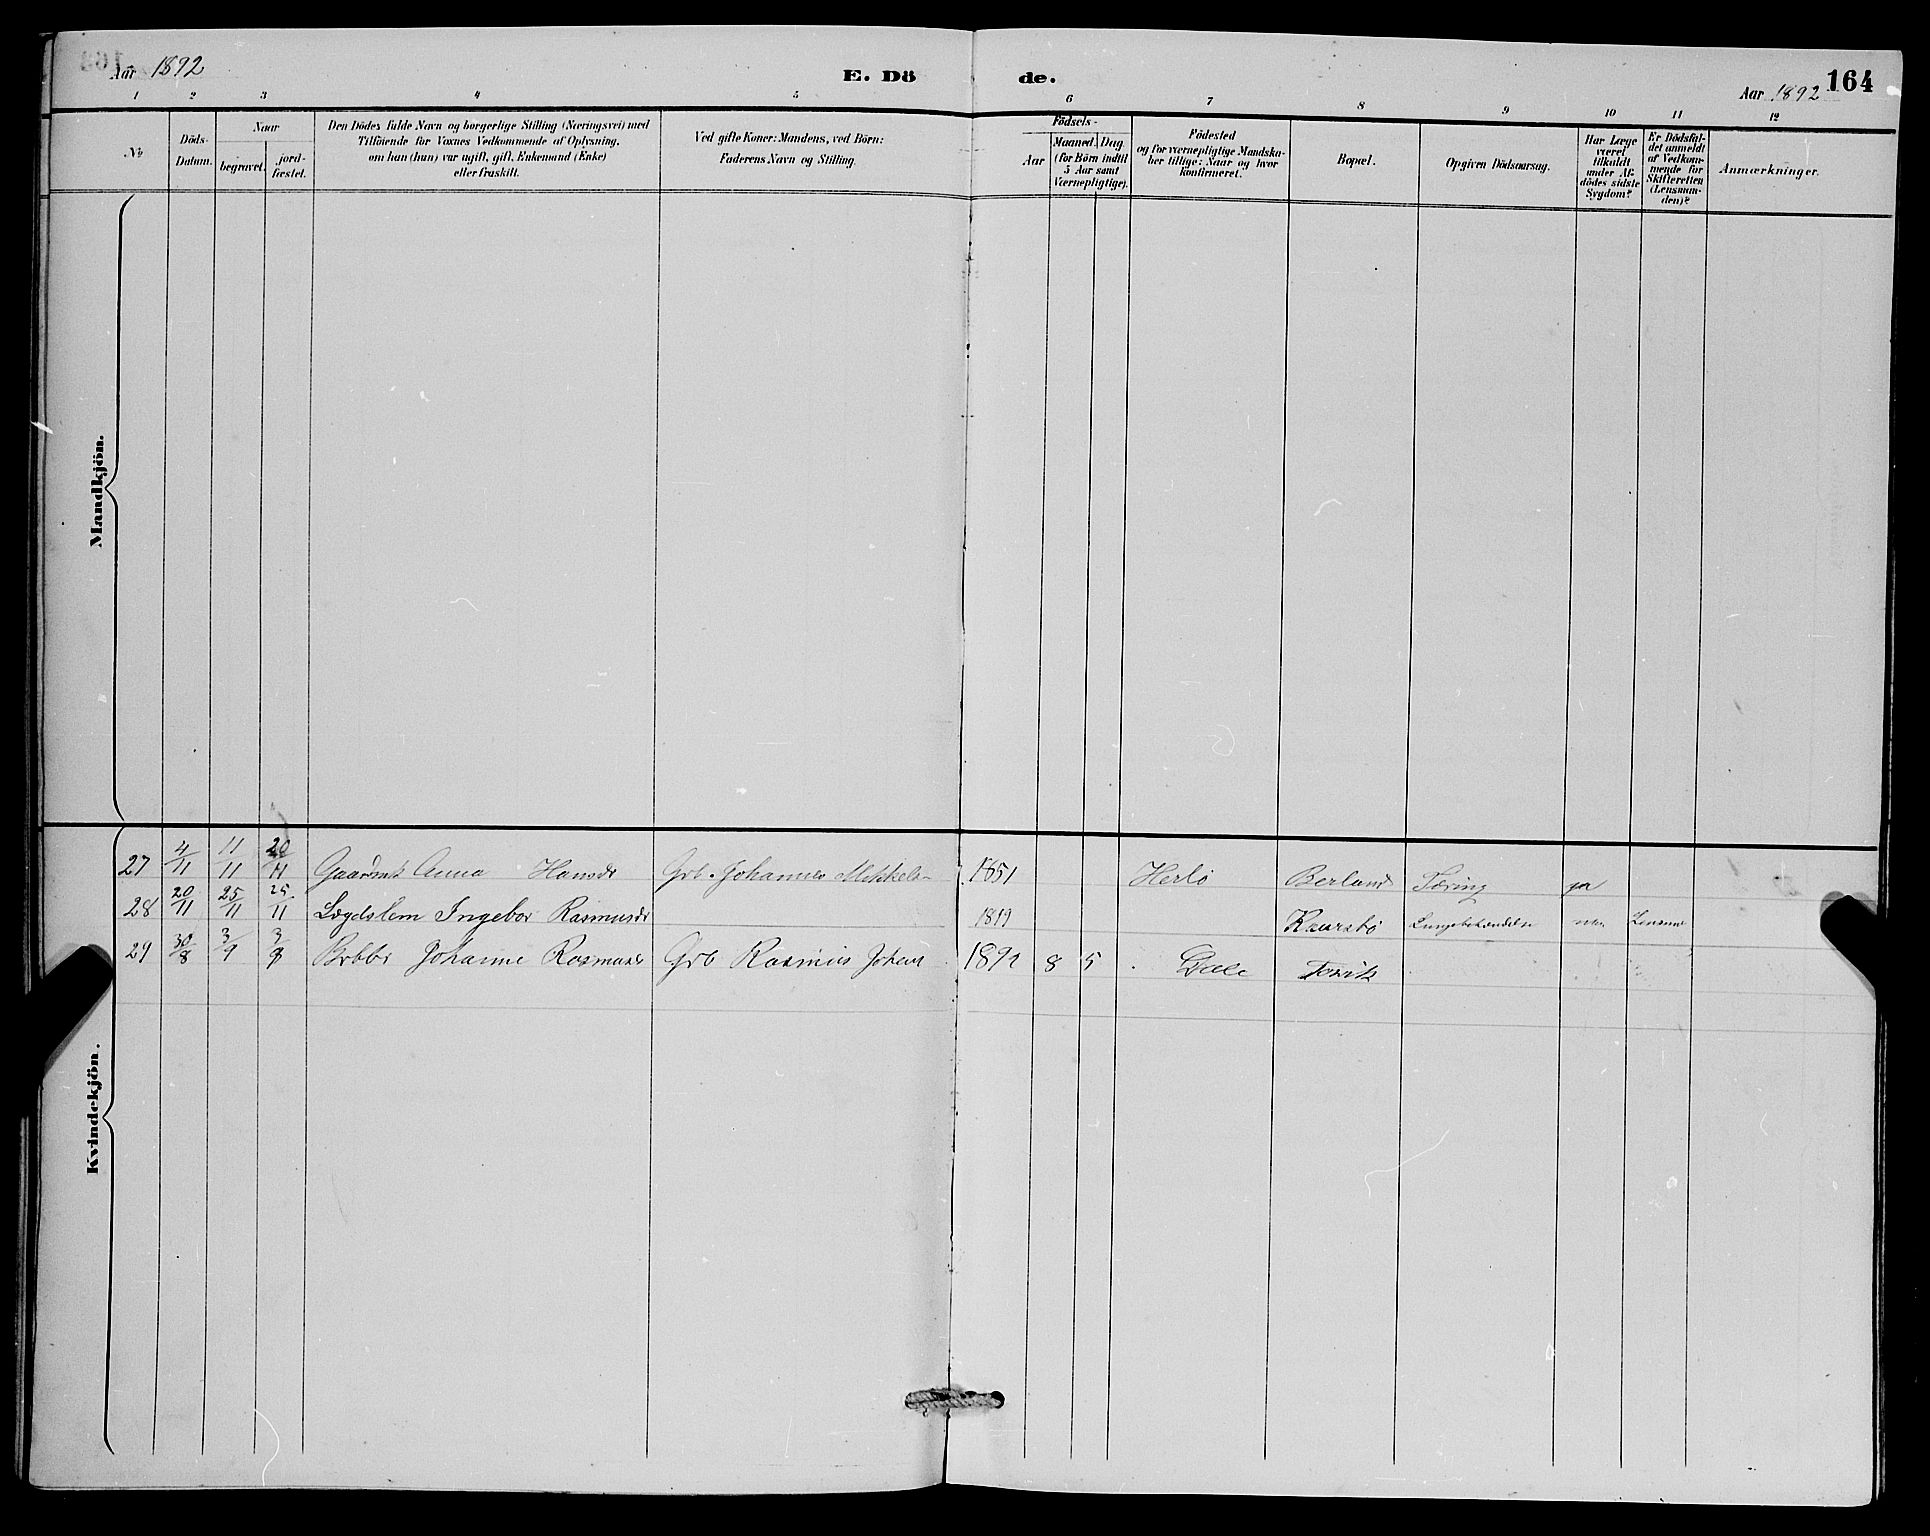 Aar 1892
E. Dö
de.
Aar 1892
164
1 2 3 4 5 6 7 8 9 10 11 12
No
Döds-
Datum.
Naar
begravet.
jord-
fæstet.
Den Dödes fulde Navn og borgerlige Stilling (Næringsvei) med
Tilföiende for Voxnes Vedkommende af Oplysning,
om han (hun) var ugift, gift, Enkemand (Enke)
eller fraskilt.
Ved gifte Koner: Mandens, ved Börn:
Faderens Navn og Stilling.
Födsels-
Aar
Maaned. Dag.
(for Börn indtil
5 Aar samt
Værnepligtige).
Födested
og for værnepligtige Mandska-
ber tillige: Naar og hvor
konfirmeret.
Bopæl.
Opgiven Dödsaarsag.
Har Læge
været
tilkaldt
under Af-
dödes sidste
Sygdom?
Er Dödsfal-
det anmeldt
af Vedkom-
mende for
Skifteretten
(Lensman-
den)?
Anmærkninger.
Mandkjön.
Kvindekjön.
27 4/11 11/11 20/11 Anna Hansdr Grb. Johannes Mikkels- 1851 Herlö Berland Tæring ja
28 20/11 25/11 25/11 Lægdslem Ingebor Rasmusdr 1819 Lungebetændelse
29 30/8 3/9 3/9 Johanne Rasmusdr Grb Rasmus Johan 1892 8 5 Dale